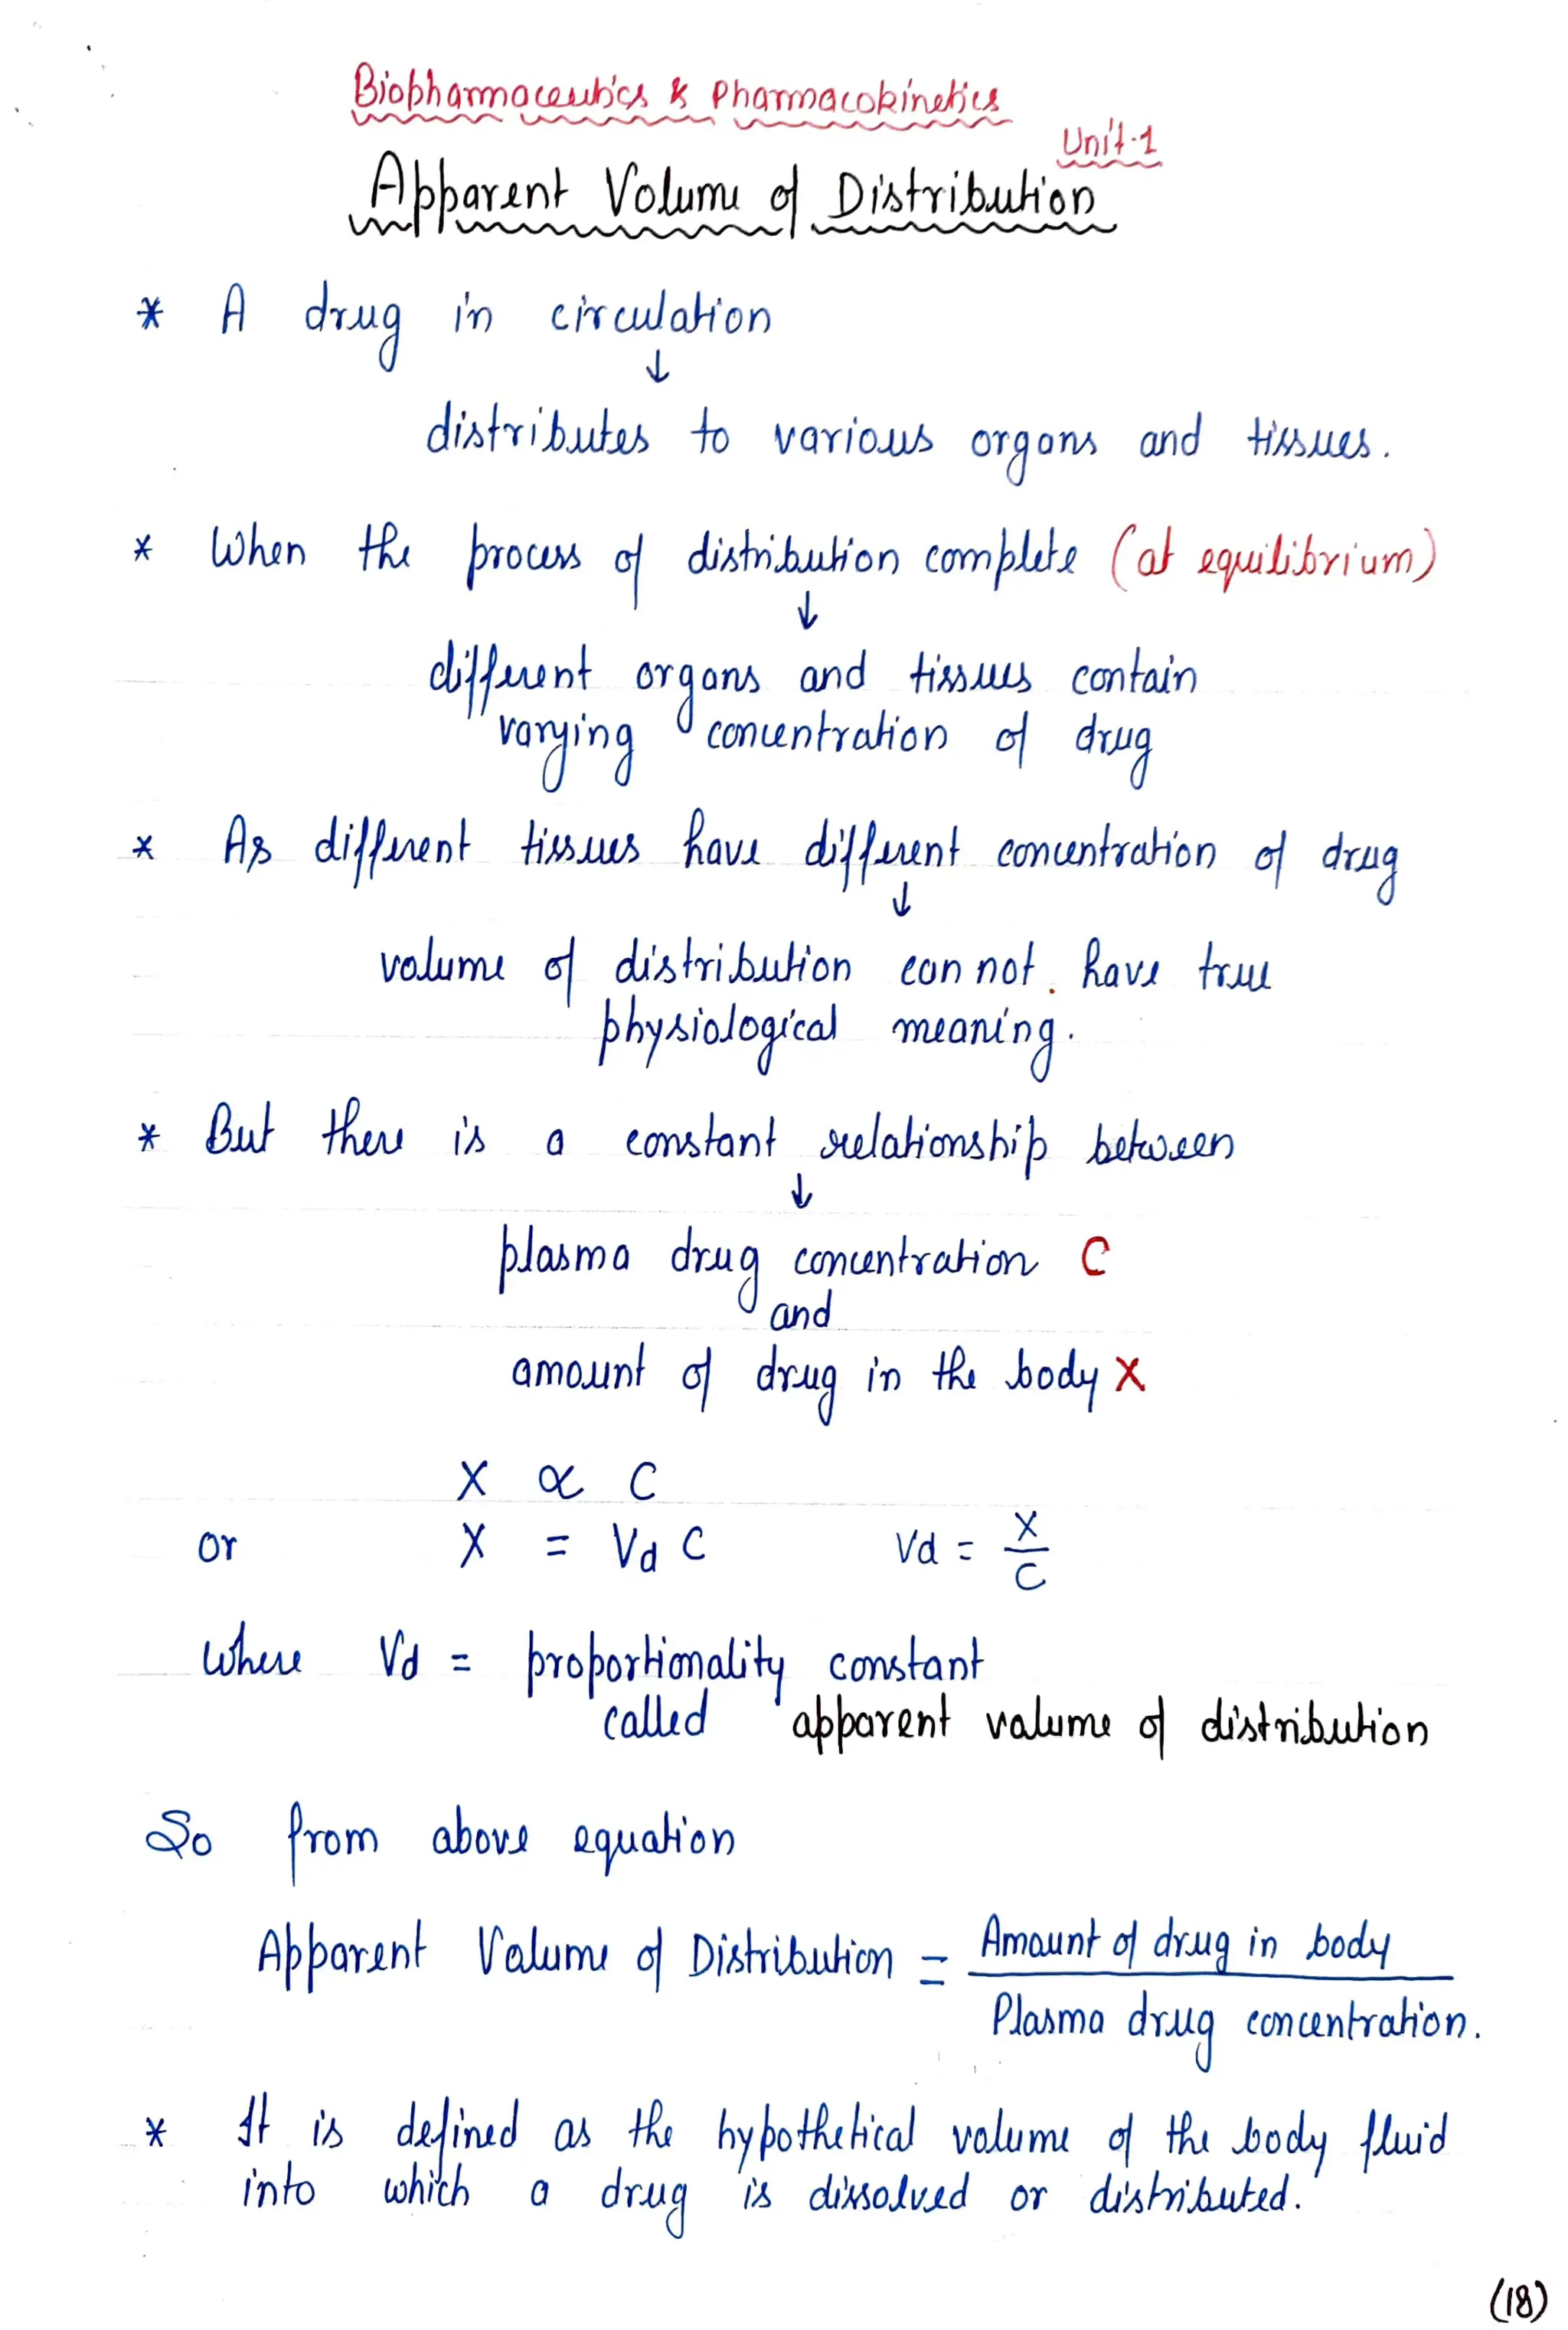 Biopharmaceutics & Pharmacokinetics
Unit-1
Apparent Volume of Distribution
* A drug in circulation
↓
distributes to various organs and tissues.
* When the process of distribution complete (at equilibrium)
↓
different organs and tissues contain
varying concentration of drug
* As different tissues have different concentration of drug
↓
volume of distribution can not. have true
physiological meaning.
* But there is a constant relationship between
↓
plasma drug concentration C
and
amount of drug in the body X
X ∝ C
or X = Vd C Vd = X/C
where Vd = proportionality constant
called apparent volume of distribution
So from above equation
Apparent Volume of Distribution = Amount of drug in body
Plasma drug concentration.
* It is defined as the hypothetical volume of the body fluid
into which a drug is dissolved or distributed.
(18)